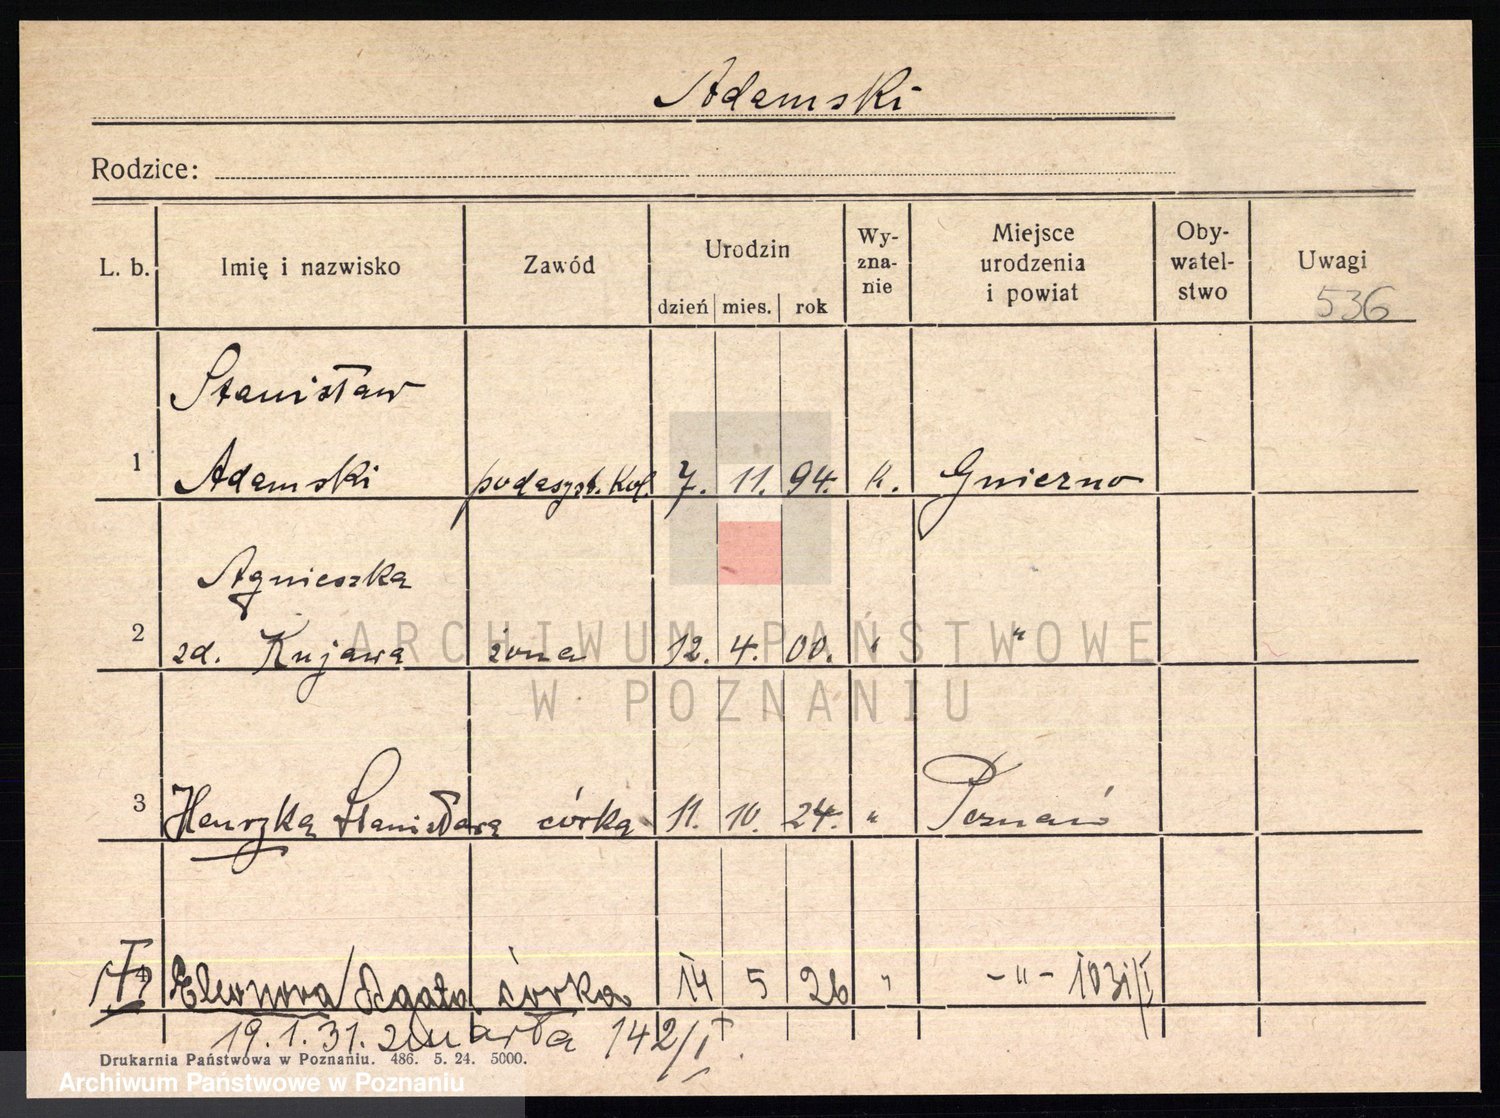 Adamski
Rodzice:
L. b. Imię i nazwisko Zawód Urodzin dzień mies. rok Wy-zna-nie Miejsce urodzenia i powiat Oby-watel-stwo Uwagi
536
Stanisław
1 Adamski podasyst. kol. 7. 11. 94. k. Gniezno
Agnieszka
2 zd. Kujawa żona 12. 4. 00. " "
3 Henryka Stanisława córka 11. 10. 24. " Poznań
4 Eleonora Agata córka 14 5 26 " -"- 1031/I
19.1.31. zmarła 142/I.
Drukarnia Państwowa w Poznaniu. 486. 5. 24. 5000.
ARCHIWUM PAŃSTWOWE
W POZNANIU
Archiwum Państwowe w Poznaniu